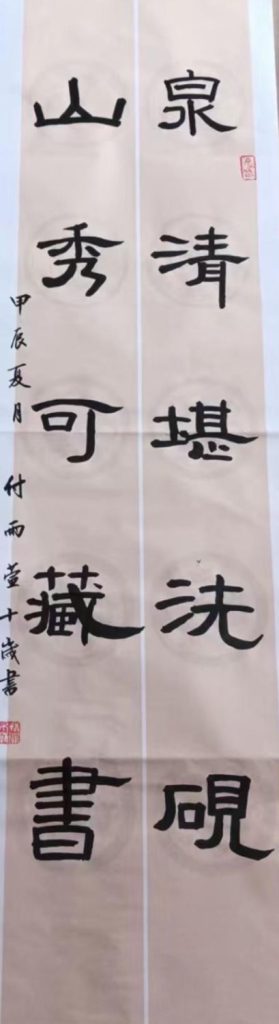 泉清堪洗硯
山秀可藏書
甲辰夏月付雨萱十歲書